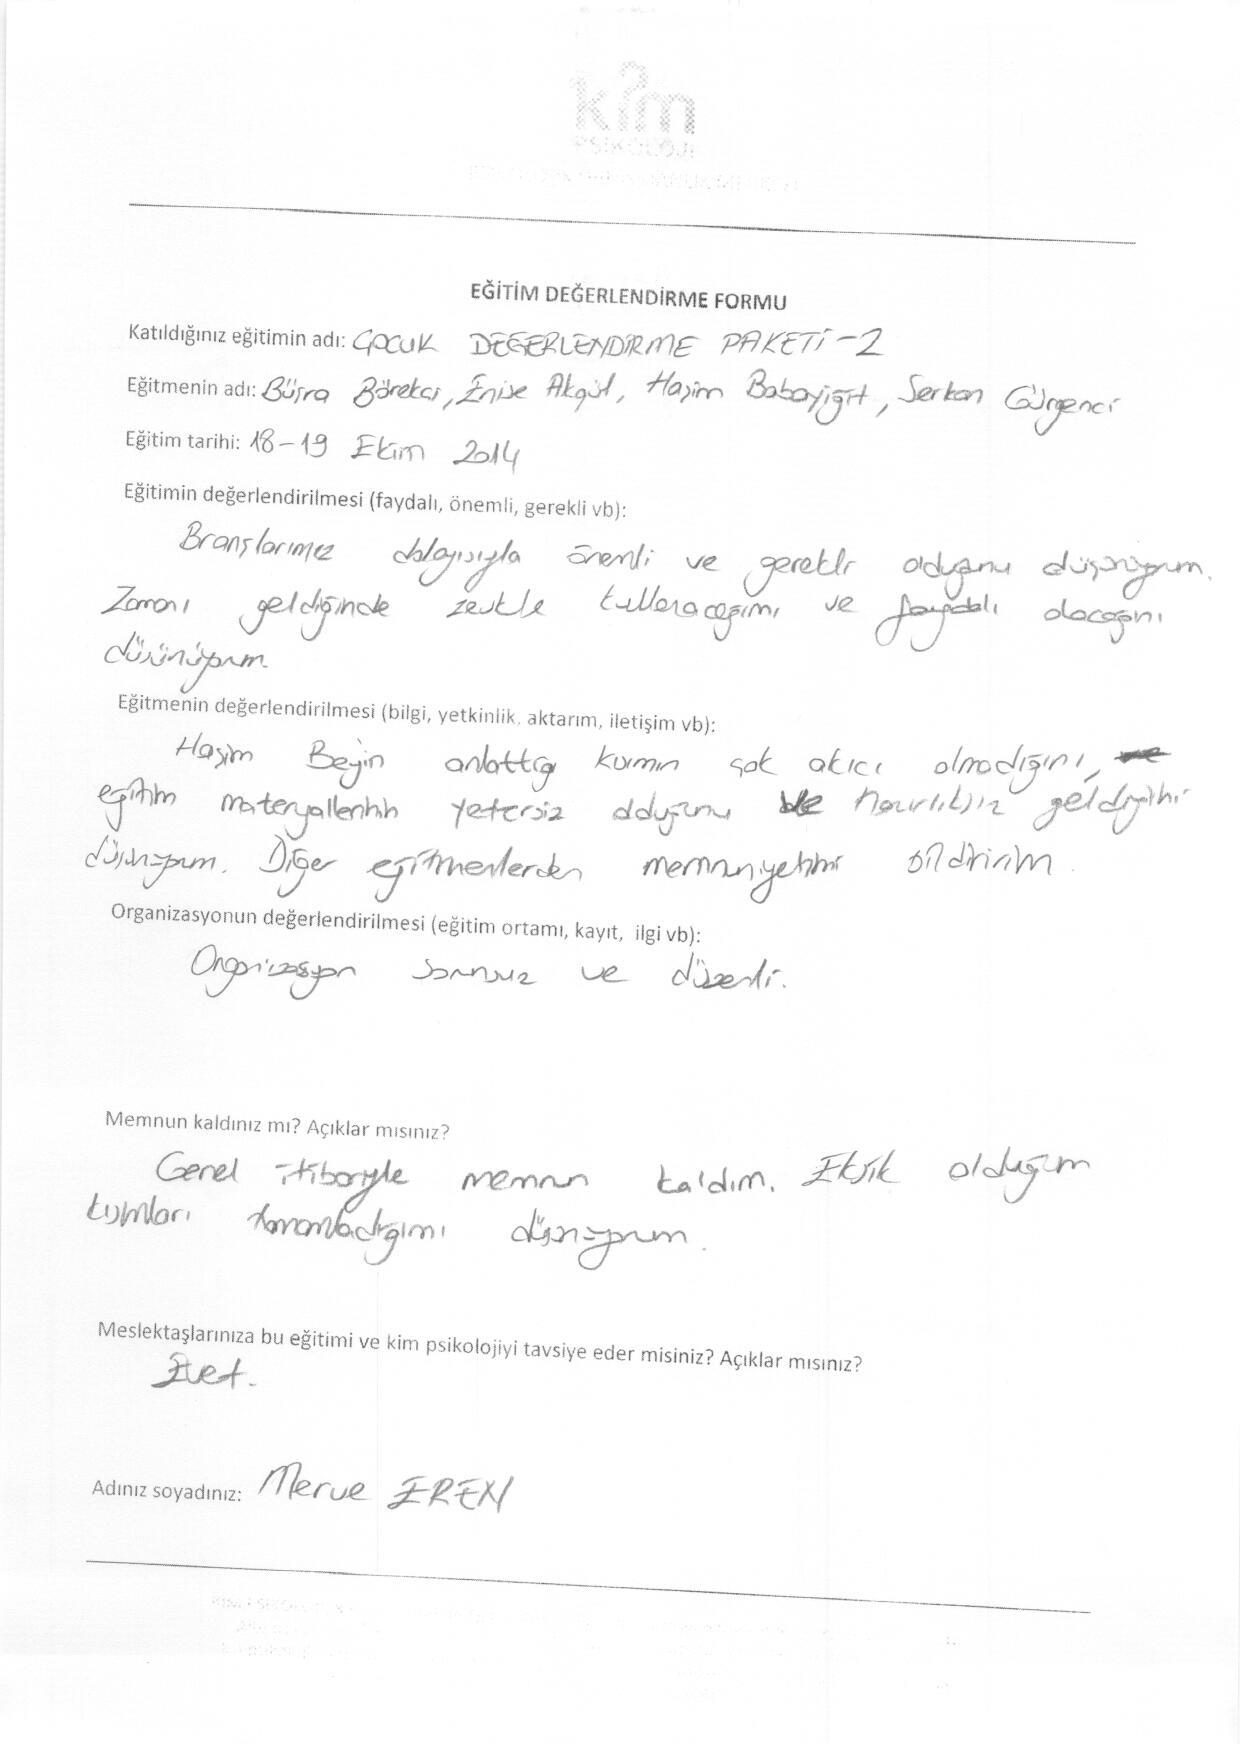 kim
PSİKOLOJİ
EĞİTİM DEĞERLENDİRME FORMU
Katıldığınız eğitimin adı: ÇOCUK DEĞERLENDİRME PAKETİ-2
Eğitmenin adı: Büşra Börekci, Enise Akgül, Haşim Babayiğit, Serkan Gürgenci
Eğitim tarihi: 18-19 Ekim 2014
Eğitimin değerlendirilmesi (faydalı, önemli, gerekli vb):
Branşlarımız dolayısıyla önemli ve gerekli olduğunu düşünüyorum.
Zamanı geldiğinde zevkle kullanacağımı ve faydalı olacağını
düşünüyorum.
Eğitmenin değerlendirilmesi (bilgi, yetkinlik, aktarım, iletişim vb):
Haşim Beyin anlattığı kısmın çok akıcı olmadığını,
eğitim materyallerinin yetersiz olduğunu ve hazırlıksız geldiğini
düşünüyorum. Diğer eğitmenlerden memnuniyetimi bildiririm.
Organizasyonun değerlendirilmesi (eğitim ortamı, kayıt, ilgi vb):
Organizasyon sorunsuz ve düzenli.
Memnun kaldınız mı? Açıklar mısınız?
Genel itibariyle memnun kaldım. Eksik olduğum
kısımları tamamladığımı düşünüyorum.
Meslektaşlarınıza bu eğitimi ve kim psikolojiyi tavsiye eder misiniz? Açıklar mısınız?
Evet.
Adınız soyadınız: Merve EREN